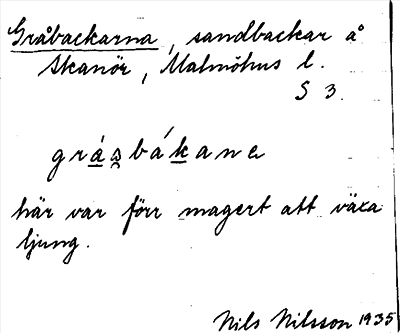 Gråbackarna, sandbackar å
Skanör, Malmöhus l.
S 3.
gráa̯bákane
här var förr magert att växa
ljung.
Nils Nilsson 1935